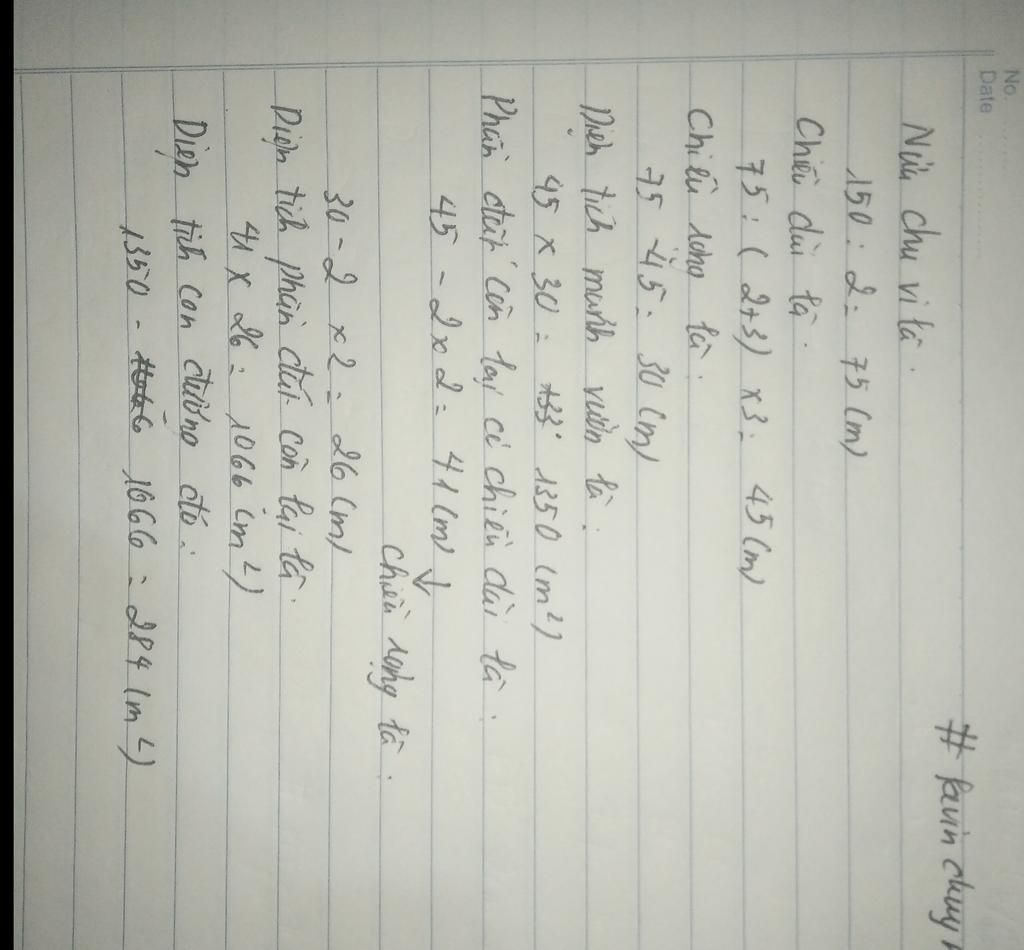 No.
Date
# favin chuy
Nửa chu vi là.
150 : 2 = 75 (m)
Chiều dài là.
75 : ( 2+3) x3 = 45 (m)
Chiều rộng là.
75 - 45 = 30 (m)
Diện tích mảnh vườn là :
45 x 30 = 1350 (m²)
Phần đất còn lại có chiều dài là.
45 - 2 x 2 = 41 (m)
chiều rộng là.
30 - 2 x 2 = 26 (m)
Diện tích phần đất còn lại là.
41 x 26 = 1066 (m²)
Diện tích con đường đó :
1350 - 1066 = 284 (m²)